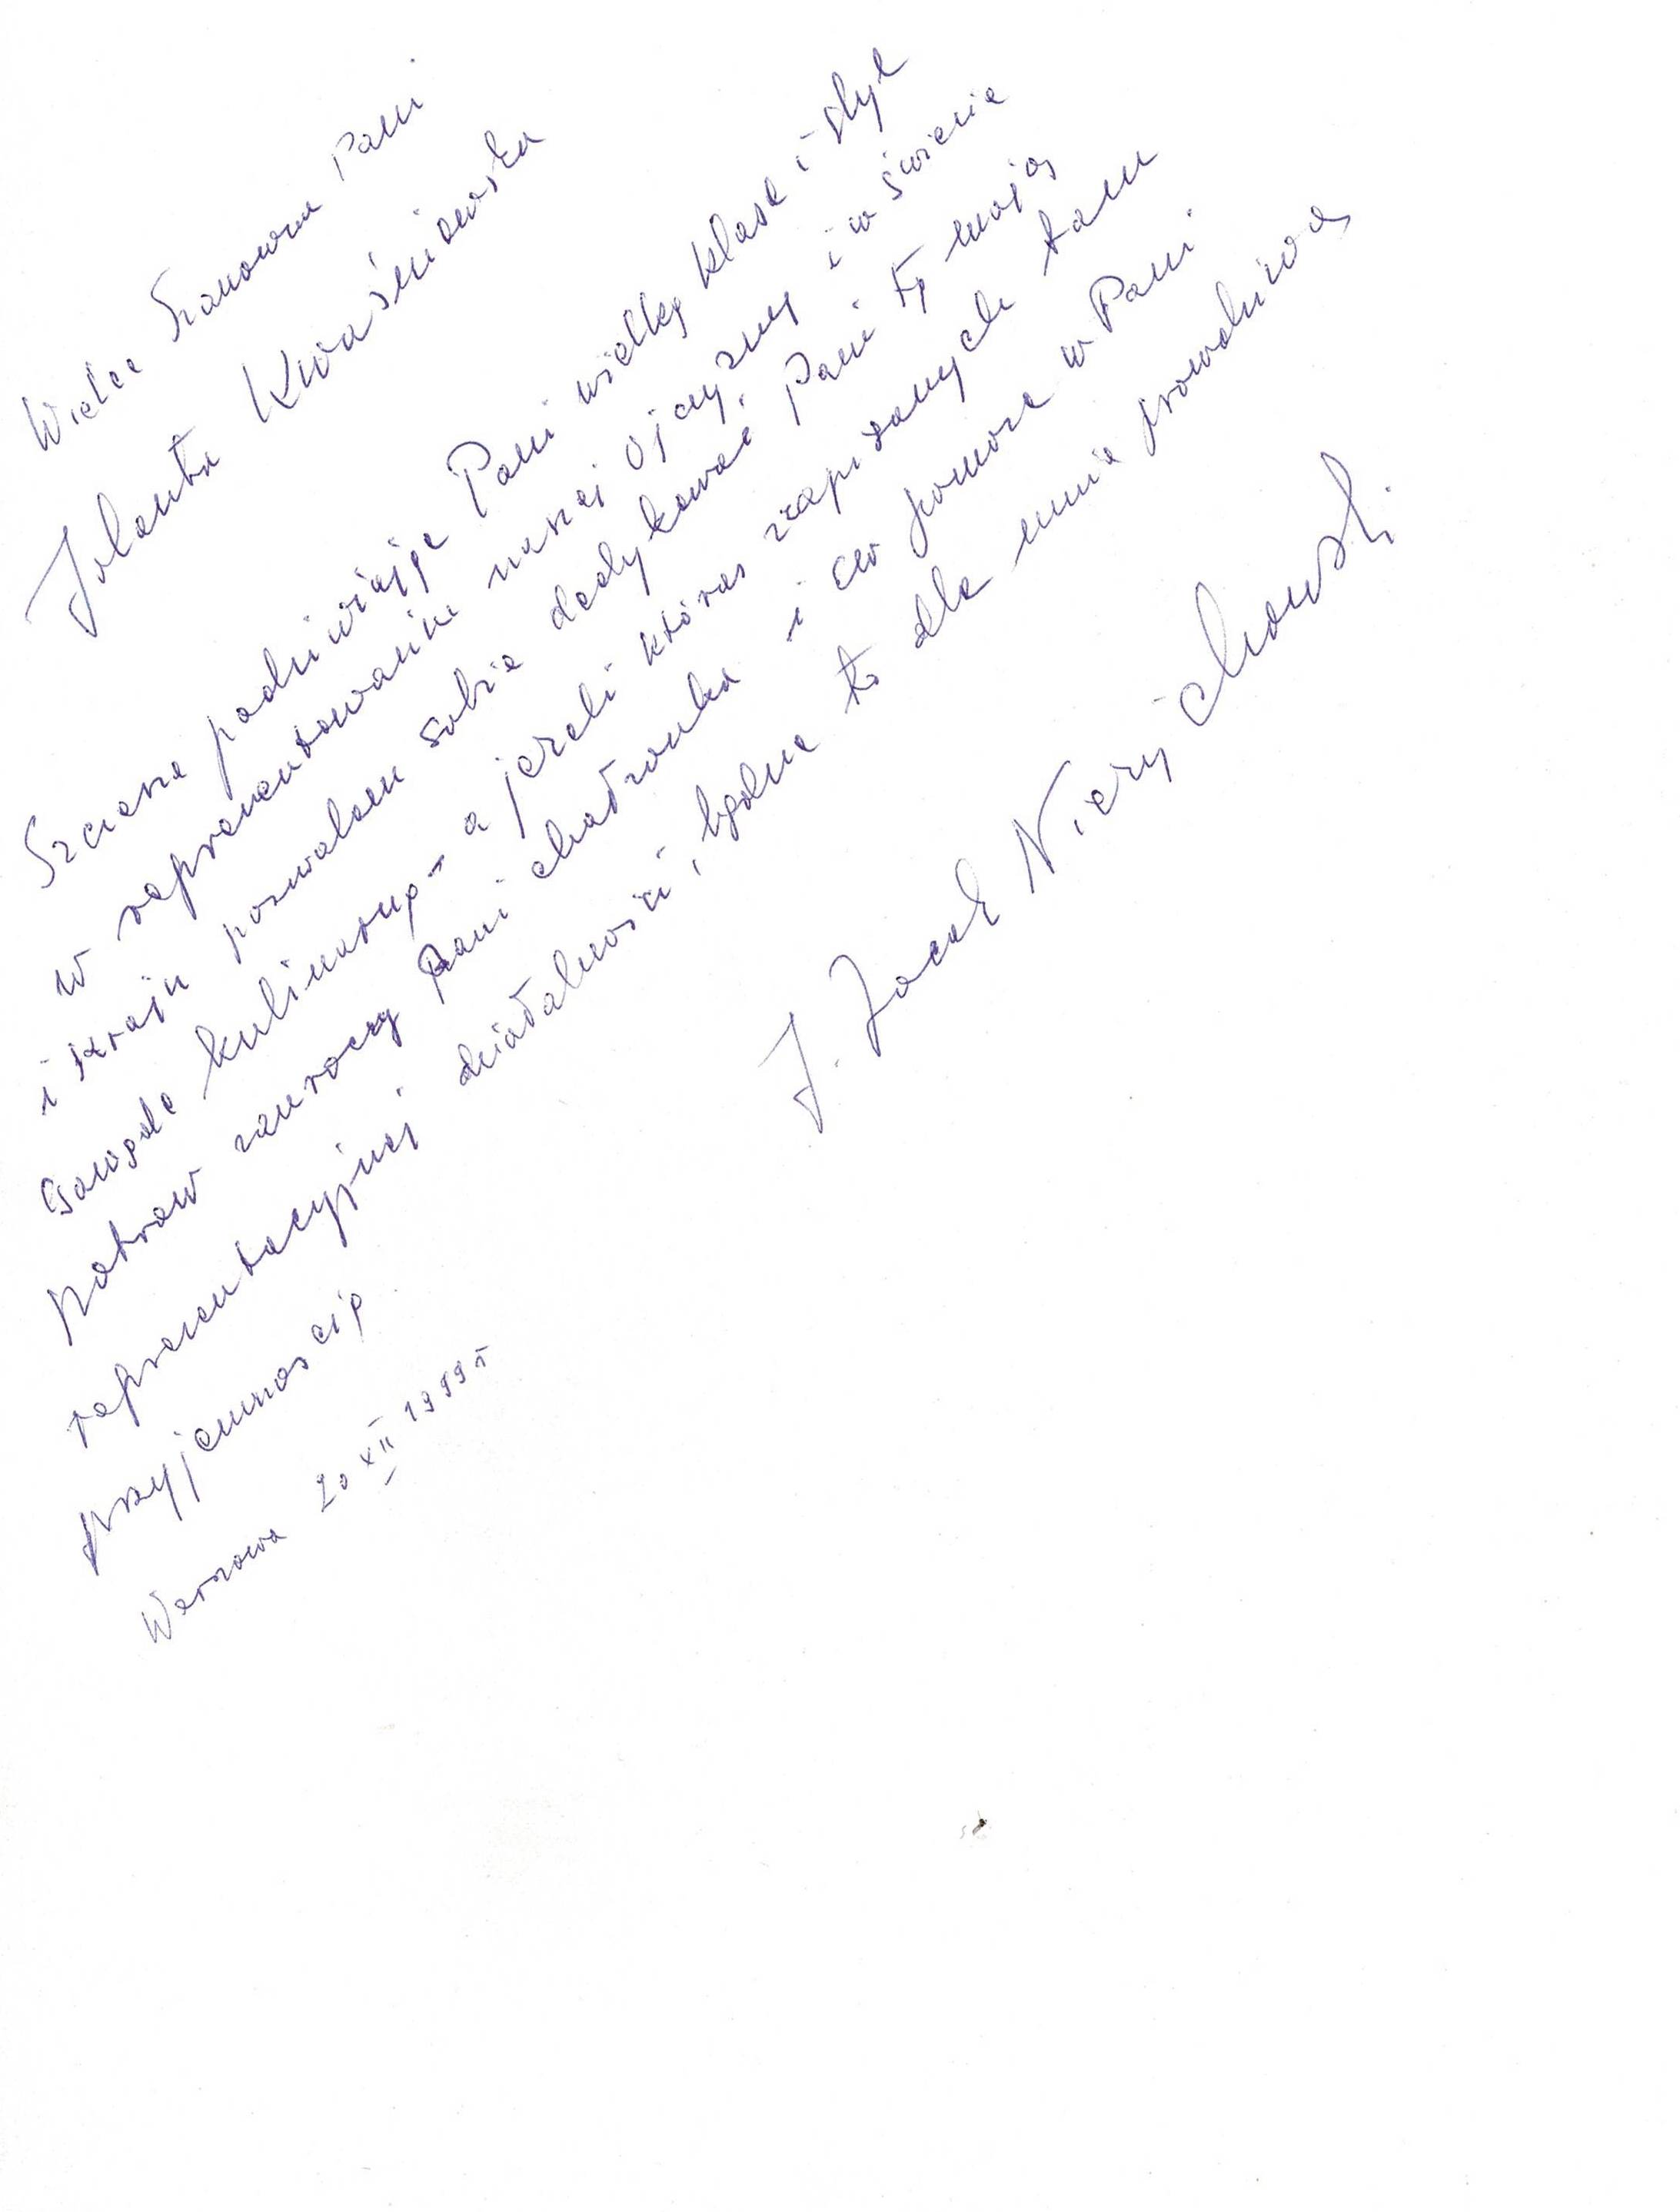 Wielce Szanowna Pani
Jolanta Kwaśniewska
Szczerze podziwiając Pani wielką klasę i styl
w reprezentowaniu naszej ojczyzny i w świecie
i kraju pozwalam sobie dedykować Pani tę moją
gawędę kulinarną - a jeżeli któraś z zapisanych tam
potraw zauroczy Pani chadzonka i co pomoże w Pani
reprezentacyjnej działalności, będzie to dla mnie prawdziwą
przyjemnością
J. Jacek Nieżychowski
Warszawa 20 XII 1999 r